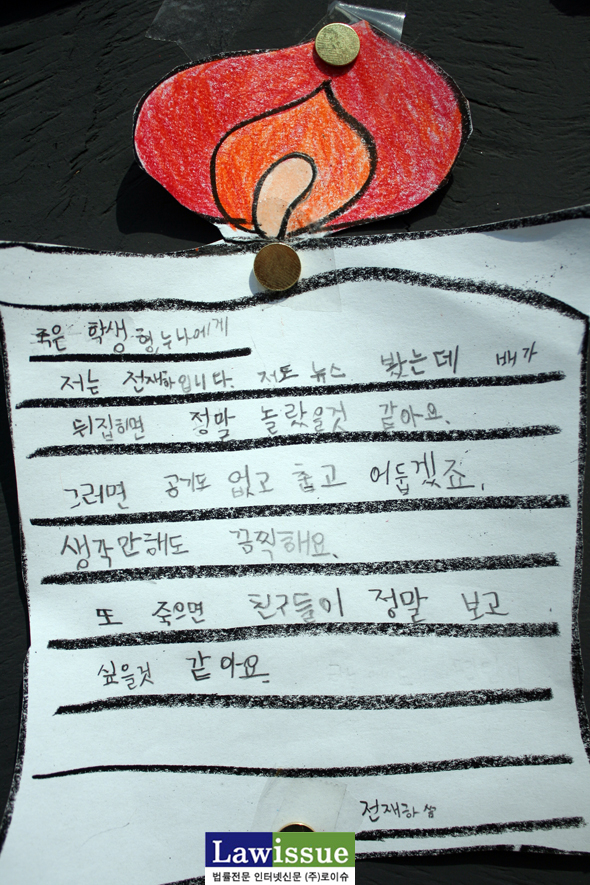 죽은 학생 형,누나에게
저는 전재하입니다. 저도 뉴스 봤는데 배가
뒤집히면 정말 놀랐을것 같아요.
그러면 공기도 없고 춥고 어둡겠죠.
생각만해도 끔찍해요.
또 죽으면 친구들이 정말 보고
싶을것 같아요.
전재하 씀
Lawissue
법률전문 인터넷신문 (주)로이슈